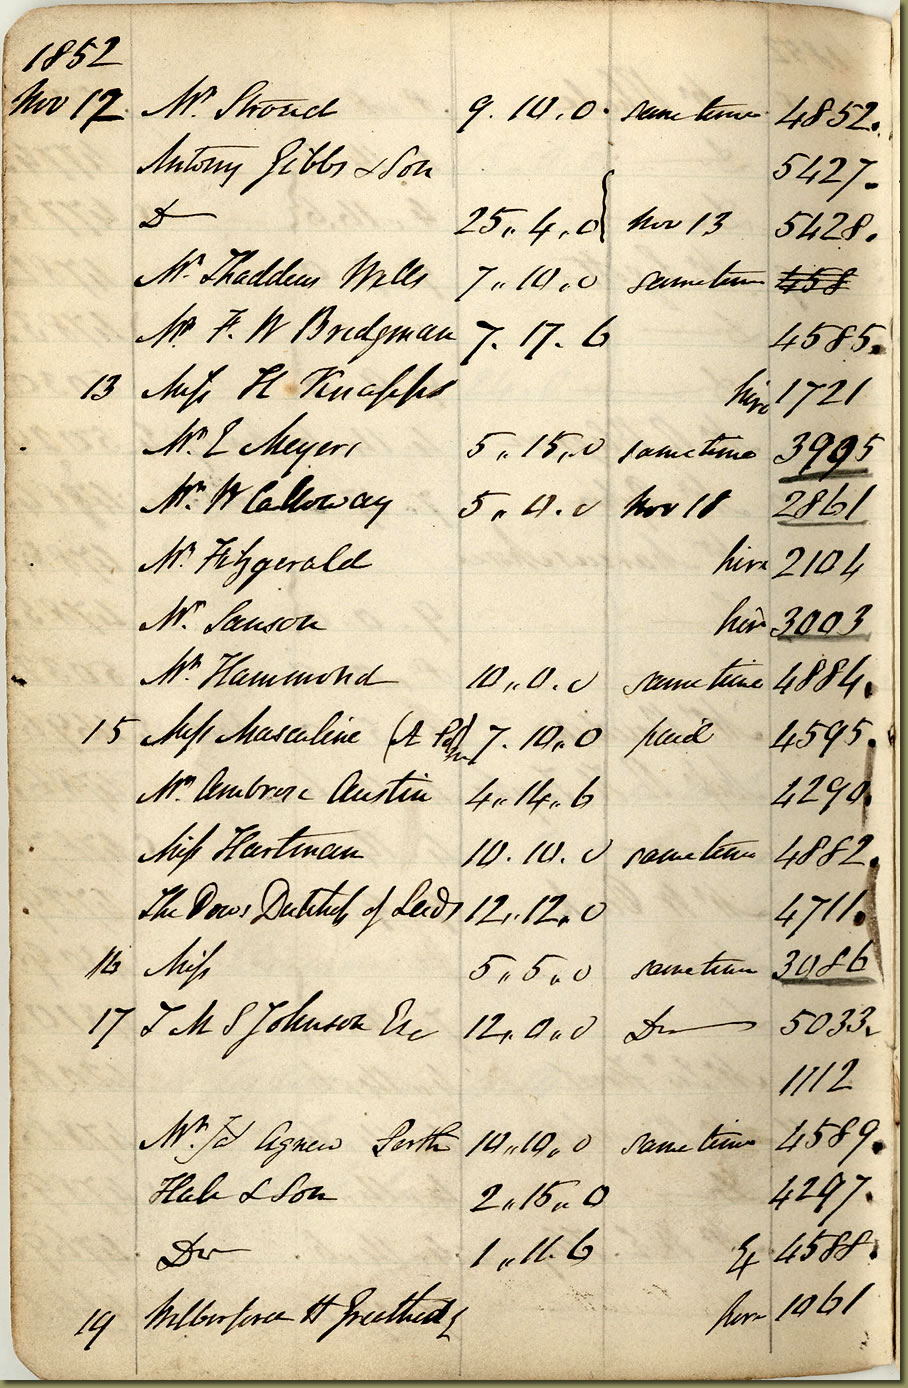 1852
Nov 12 Mr. Stroud 9.10.0. sametime 4852.
Antony Gibbs & Son 5427.
Do 25,,4,,0 Nov 13 5428.
Mr. Thaddeus Wells 7,,10,,0 sametime 458
Mr F. W Bridgman 7.17.6 4585.
13 Miss H Knapps hire 1721
Mr. E Meyers 5,,15,,0 sametime 3995
Mr. W Calloway 5,,0.0 Nov 18 2861
Mr. Fitzgerald hire 2104
Mr. Sanson hire 3003
Mr. Hammond 10,,0.0 same time 4884.
15 Miss Masculine 7.10,,0 paid 4595.
Mr. Ambrose Austin 4,,14,,6 4290.
Miss Hartman 10.10.0 sametime 4882.
The Dow. Dutchess of Leeds 12,,12,,0 4711.
16 Miss 5,,5,,0 sametime 3086
17 T M S Johnson Esq 12,,0,,0 Do 5033.
1112
Mr. Agnew Perth 10,,10,,0 sametime 4589.
Hale & Son 2,,15,,0 4297.
Do 1,,11.6 4588.
19 Wilberforce H hire 1061